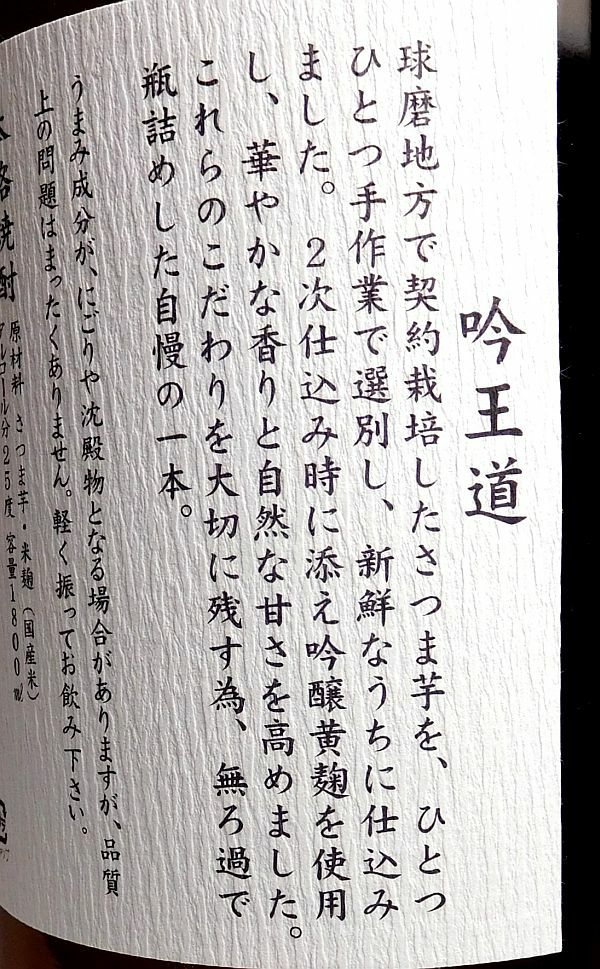 吟王道
球磨地方で契約栽培したさつま芋を、ひとつ
ひとつ手作業で選別し、新鮮なうちに仕込み
ました。2次仕込み時に添え吟醸黄麹を使用
し、華やかな香りと自然な甘さを高めました。
これらのこだわりを大切に残す為、無ろ過で
瓶詰めした自慢の一本。
うまみ成分が、にごりや沈殿物となる場合がありますが、品質
上の問題はまったくありません。軽く振ってお飲み下さい。
本格焼酎
原材料 さつま芋・米麹（国産米）
アルコール分25度 容量1800ml